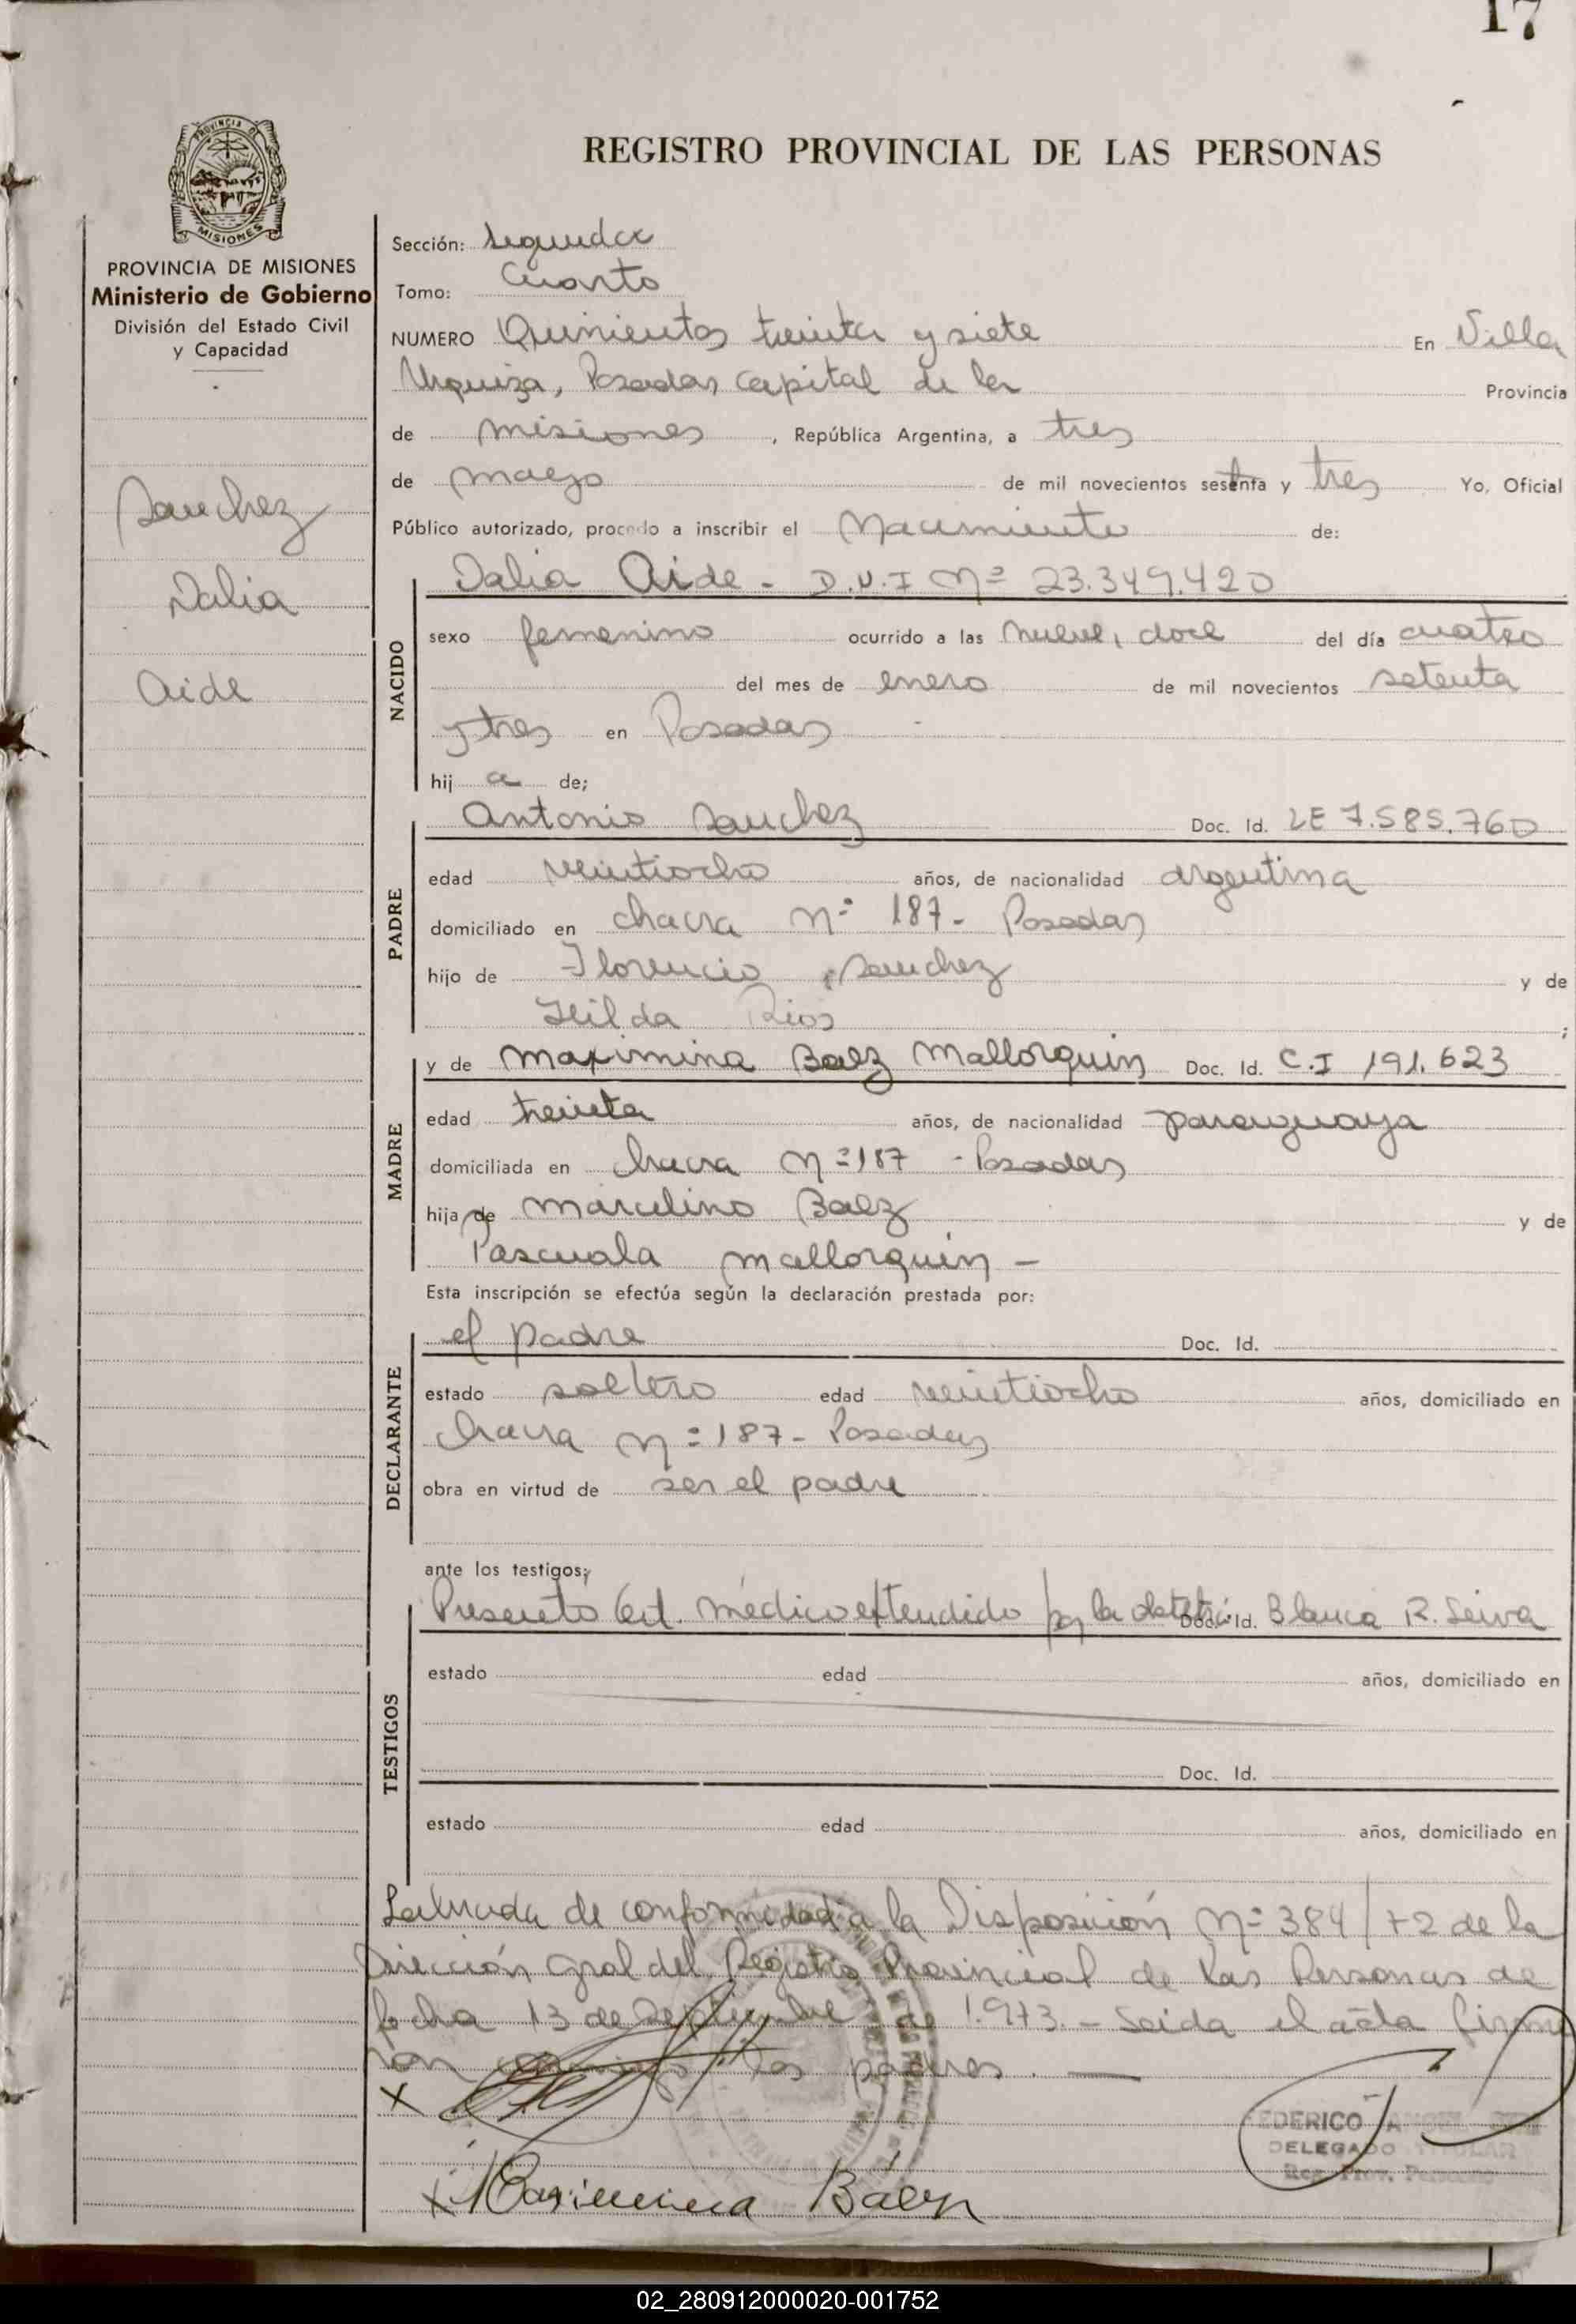 17
REGISTRO PROVINCIAL DE LAS PERSONAS
PROVINCIA DE MISIONES
Ministerio de Gobierno
División del Estado Civil
y Capacidad
Sanchez
Dalia
Aide
Sección: Segunda
Tomo: Cuarto
NUMERO Quinientos treinta y siete En Villa
Urquiza, Posadas Capital de la Provincia
de misiones, República Argentina, a tres
de mayo de mil novecientos setenta y tres Yo, Oficial
Público autorizado, procedo a inscribir el Nacimiento de:
NACIDO
Dalia Aide - D.N.I Nº 23.349.420
sexo femenino ocurrido a las nueve, doce del día cuatro
del mes de enero de mil novecientos setenta
y tres en Posadas
hija de;
PADRE
Antonio Sanchez Doc. Id. LE 7.585.760
edad veintiocho años, de nacionalidad argentina
domiciliado en chacra Nº 187 - Posadas
hijo de Florencio Sanchez y de
Hilda Rios;
MADRE
y de Maximina Baez Mallorquin Doc. Id. C.I 191.623
edad treinta años, de nacionalidad paraguaya
domiciliada en chacra Nº 187 - Posadas
hija de Marcelino Baez y de
Pascuala Mallorquin -
Esta inscripción se efectúa según la declaración prestada por:
DECLARANTE
el padre Doc. Id.
estado soltero edad veintiocho años, domiciliado en
chacra Nº 187 - Posadas
obra en virtud de ser el padre
ante los testigos;
TESTIGOS
Presentó Cert. médico extendido por la obstetra Doc. Id. Blanca R. Leiva
estado edad años, domiciliado en
Doc. Id.
estado edad años, domiciliado en
Labrada de conformidad a la Disposición Nº 384/72 de la
Dirección Gral del Registro Provincial de las Personas de
fecha 13 de Septiembre de 1.973. - Leida el acta firma
ron conmigo los padres. —
X
FEDERICO
DELEGADO TITULAR
Reg. Prov. Personas
X Maximina Báez
02_280912000020-001752